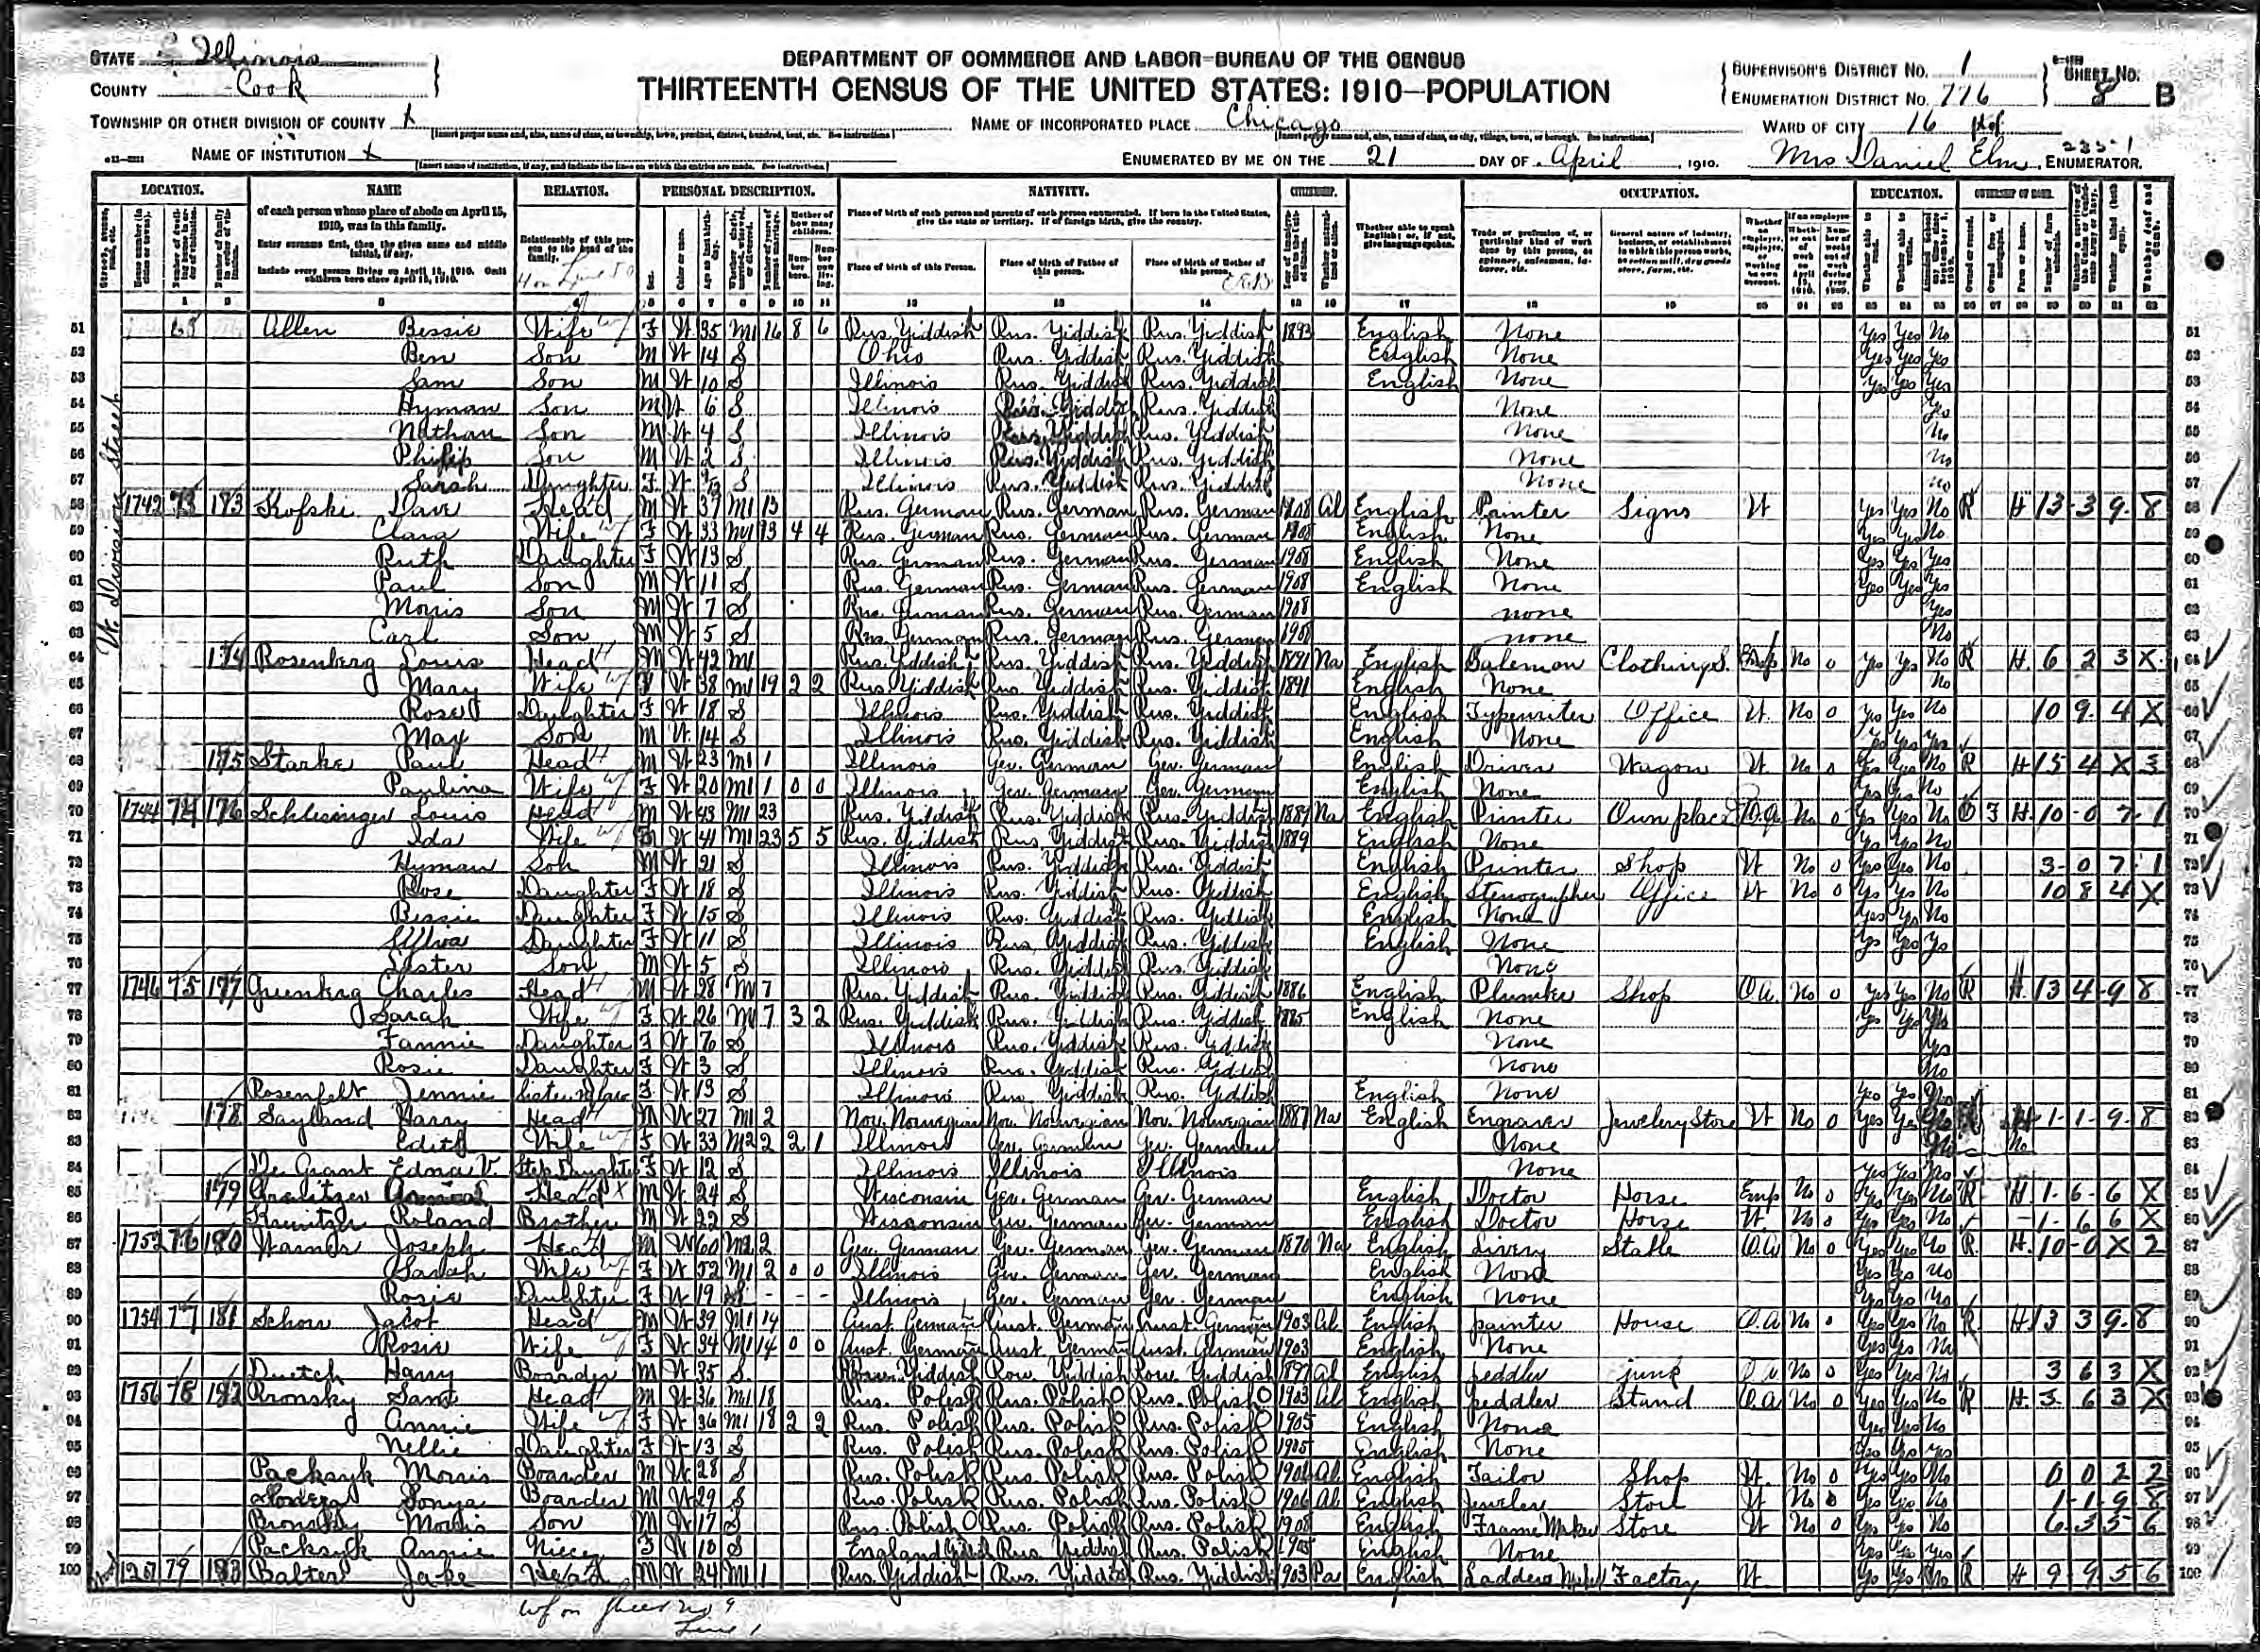 STATE Illinois
COUNTY Cook
DEPARTMENT OF COMMERCE AND LABOR—BUREAU OF THE CENSUS
THIRTEENTH CENSUS OF THE UNITED STATES: 1910—POPULATION
SUPERVISOR'S DISTRICT No. 1
ENUMERATION DISTRICT No. 776
SHEET No. 8 B
TOWNSHIP OR OTHER DIVISION OF COUNTY X
NAME OF INCORPORATED PLACE Chicago
WARD OF CITY 16
NAME OF INSTITUTION X
ENUMERATED BY ME ON THE 21 DAY OF April, 1910. Mrs Daniel Elm ENUMERATOR.
LOCATION. NAME RELATION. PERSONAL DESCRIPTION. NATIVITY. CITIZENSHIP. OCCUPATION. EDUCATION. OWNERSHIP OF HOME.
of each person whose place of abode on April 15, 1910, was in this family.
Enter surname first, then the given name and middle initial, if any.
Include every person living on April 15, 1910. Omit children born since April 15, 1910.
Relationship of this person to the head of the family.
Place of birth of each person and parents of each person enumerated. If born in the United States, give the state or territory. If of foreign birth, give the country.
Place of birth of this Person. Place of birth of Father of this person. Place of birth of Mother of this person.
W. Division Street
51 68 Allen Bessie Wife F W 35 M1 16 8 6 Rus. Yiddish Rus. Yiddish Rus. Yiddish 1893 English None Yes Yes No
52 Ben Son M W 14 S Ohio Rus. Yiddish Rus. Yiddish English None Yes Yes Yes
53 Sam Son M W 10 S Illinois Rus. Yiddish Rus. Yiddish English None Yes Yes Yes
54 Hyman Son M W 6 S Illinois Rus. Yiddish Rus. Yiddish None Yes
55 Nathan Son M W 4 S Illinois Rus. Yiddish Rus. Yiddish None No
56 Philip Son M W 2 S Illinois Rus. Yiddish Rus. Yiddish None No
57 Sarah Daughter F W S Illinois Rus. Yiddish Rus. Yiddish None No
58 1742 73 173 Kofski Dave Head M W 37 M1 13 Rus. German Rus. German Rus. German 1908 Al English Painter Signs W Yes Yes No R H 13-3 9-8
59 Clara Wife F W 33 M1 13 4 4 Rus. German Rus. German Rus. German 1908 English None Yes Yes No
60 Ruth Daughter F W 13 S Rus. German Rus. German Rus. German 1908 English None Yes Yes Yes
61 Paul Son M W 11 S Rus. German Rus. German Rus. German 1908 English None Yes Yes Yes
62 Morris Son M W 7 S Rus. German Rus. German Rus. German 1908 none Yes
63 Carl Son M W 5 S Rus. German Rus. German Rus. German 1908 none No
64 174 Rosenberg Louis Head M W 42 M1 Rus. Yiddish Rus. Yiddish Rus. Yiddish 1891 Na English Salesman Clothing S. No 0 Yes Yes No R H 6 2 3 X
65 Mary Wife W 38 M1 19 2 2 Rus. Yiddish Rus. Yiddish Rus. Yiddish 1891 English None No
66 Rose Daughter F W 18 S Illinois Rus. Yiddish Rus. Yiddish English Typewriter Office W No 0 Yes Yes No 10 9 4 X
67 Max Son M W 14 S Illinois Rus. Yiddish Rus. Yiddish English None Yes Yes Yes
68 175 Starke Paul Head M W 23 M1 1 Illinois Ger. German Ger. German English Driver Wagon W No 0 Yes Yes No R H 15 4 X 3
69 Paulina Wife F W 20 M1 1 0 0 Illinois Ger. German Ger. German English None Yes Yes No
70 1744 74 176 Schlesinger Louis Head M W 43 M1 23 Rus. Yiddish Rus. Yiddish Rus. Yiddish 1889 Na English Printer Own place O.A. No 0 Yes Yes No O F H 10-0 7-1
71 Ida Wife F W 41 M1 23 5 5 Rus. Yiddish Rus. Yiddish Rus. Yiddish 1889 English None Yes Yes No
72 Hyman Son M W 21 S Illinois Rus. Yiddish Rus. Yiddish English Printer Shop W No 0 Yes Yes No 3-0 7 1
73 Rose Daughter F W 18 S Illinois Rus. Yiddish Rus. Yiddish English Stenographer Office W No 0 Yes Yes No 10 8 4 X
74 Bessie Daughter F W 15 S Illinois Rus. Yiddish Rus. Yiddish English None Yes Yes No
75 Sylvia Daughter F W 11 S Illinois Rus. Yiddish Rus. Yiddish English None Yes Yes Yes
76 Lester Son M W 5 S Illinois Rus. Yiddish Rus. Yiddish None
77 1746 75 177 Greenberg Charles Head M W 28 M 7 Rus. Yiddish Rus. Yiddish Rus. Yiddish 1886 English Plumber Shop O.A. No 0 Yes Yes No R H 13 4-9 8
78 Sarah Wife F W 26 M1 7 3 2 Rus. Yiddish Rus. Yiddish Rus. Yiddish 1885 English None Yes Yes
79 Fannie Daughter F W 6 S Illinois Rus. Yiddish Rus. Yiddish None Yes
80 Rosie Daughter F W 3 S Illinois Rus. Yiddish Rus. Yiddish None No
81 Rosenfelt Jennie Sister in law F W 13 S Illinois Rus. Yiddish Rus. Yiddish English None Yes Yes
82 178 Sayland Harry Head M W 27 M1 2 Nor. Norwegian Nor. Norwegian Nor. Norwegian 1887 Na English Engraver Jewelery Store W No 0 Yes Yes H 1-1-9-8
83 Edith Wife F W 33 M2 2 2 1 Illinois Ger. German Ger. German None
84 De Grant Edna V. Step Daughter F W 12 S Illinois Illinois Illinois None Yes Yes
85 179 Head M W 24 S Wisconsin Ger. German Ger. German English Doctor Horse Emp No 0 Yes Yes No R H 1-6-6 X
86 Roland Brother M W 22 S Wisconsin Ger. German Ger. German English Doctor Horse W No 0 Yes Yes No 1-6 6 X
87 1752 76 180 Warner Joseph Head M W 60 M2 2 Ger. German Ger. German Ger. German 1870 Na English Livery Stable O.A No 0 Yes Yes No R H 10-0 X 2
88 Sarah Wife F W 52 M1 2 0 0 Illinois Ger. German Ger. German English None Yes Yes No
89 Rosie Daughter F W 19 S - - - Illinois Ger. German Ger. German English None Yes Yes No
90 1754 77 181 Schon Jacob Head M W 39 M1 14 Aust. German Aust. German Aust. German 1903 Al English painter House O.A No 0 Yes Yes No R H 13 3 9-8
91 Rosie Wife F W 34 M1 14 0 0 Aust. German Aust. German Aust. German 1903 English None Yes Yes No
92 Duetch Harry Boarder M W 35 S Rou. Yiddish Rou. Yiddish Rou. Yiddish 1897 Al English peddler junk No 0 Yes Yes No 3 6 3 X
93 1756 78 182 Bronsky Sam Head M W 36 M1 18 Rus. Polish Rus. Polish Rus. Polish 1903 Al English peddler Stand O.A No 0 Yes Yes No R H 3 6 3 X
94 Annie Wife F W 36 M1 18 2 2 Rus. Polish Rus. Polish Rus. Polish 1905 English None Yes Yes No
95 Nellie Daughter F W 13 S Rus. Polish Rus. Polish Rus. Polish 1905 English None Yes Yes Yes
96 Packsyk Morris Boarder M W 28 S Rus. Polish Rus. Polish Rus. Polish 1906 Al English Tailor Shop W No 0 Yes Yes No 0 0 2 2
97 Sonya Boarder M W 29 S Rus. Polish Rus. Polish Rus. Polish 1906 Al English Jeweler Store W No 0 Yes Yes No 1-1-9 8
98 Bronsky Morris Son M W 17 S Rus. Polish Rus. Polish Rus. Polish 1908 English Frame Maker Store W No 0 Yes Yes No 6 5 5 6
99 Packsyk Annie Niece F W 10 S England Rus. Yiddish Rus. Polish 1905 English None Yes Yes Yes
100 1257 79 183 Balter Jake Head M W 24 M1 1 Rus. Yiddish Rus. Yiddish Rus. Yiddish 1903 Pa English Ladders Factory W Yes Yes No R H 9-9 5 6
wf on sheet no 9
Line 1